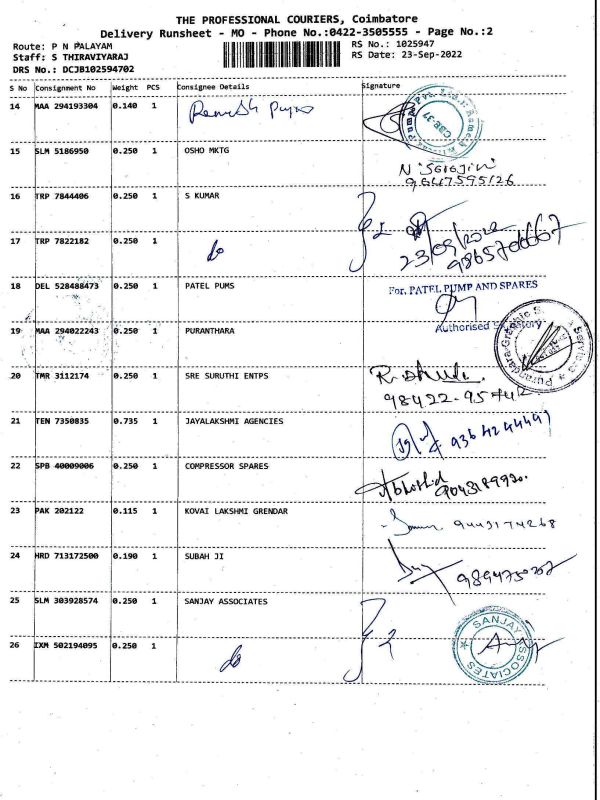 THE PROFESSIONAL COURIERS, Coimbatore
Delivery Runsheet - MO - Phone No.:0422-3505555 - Page No.:2
Route: P N PALAYAM RS No.: 1025947
Staff: S THIRAVIYARAJ RS Date: 23-Sep-2022
DRS No.: DCJB102594702
S No Consignment No Weight PCS Consignee Details Signature
14 MAA 294193304 0.140 1
15 SLM 5186950 0.250 1 OSHO MKTG
16 TRP 7844406 0.250 1 S KUMAR
17 TRP 7822182 0.250 1 do
23/09/2022
18 DEL 528488473 0.250 1 PATEL PUMS For. PATEL PUMP AND SPARES
Authorised
19 MAA 294022243 0.250 1 PURANTHARA
20 TMR 3112174 0.250 1 SRE SURUTHI ENTPS
98422-95742
21 TEN 7350835 0.735 1 JAYALAKSHMI AGENCIES
22 SPB 40009006 0.250 1 COMPRESSOR SPARES
23 PAK 202122 0.115 1 KOVAI LAKSHMI GRENDAR 9443174268
24 HRD 713172500 0.190 1 SUBAH JI
25 SLM 303928574 0.250 1 SANJAY ASSOCIATES SANJAY ASSOCIATES
26 IXM 502194095 0.250 1 do